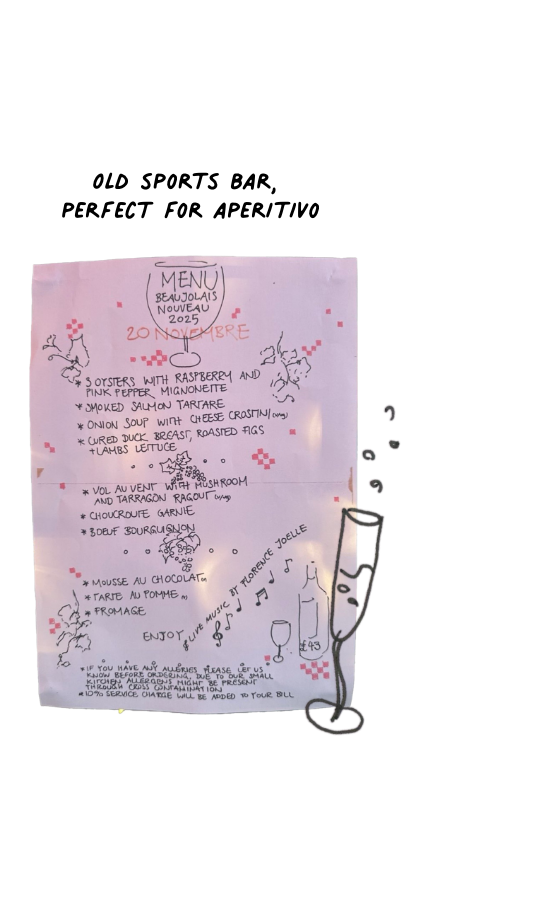 OLD SPORTS BAR,
PERFECT FOR APERITIVO
MENU
BEAUJOLAIS
NOUVEAU
2025
20 NOVEMBRE
* 3 OYSTERS WITH RASPBERRY AND
PINK PEPPER MIGNONETTE
* SMOKED SALMON TARTARE
* ONION SOUP WITH CHEESE CROSTINI (veg)
* CURED DUCK BREAST, ROASTED FIGS
+ LAMBS LETTUCE
* VOL AU VENT WITH MUSHROOM
AND TARRAGON RAGOUT (veg)
* CHOUCROUTE GARNIE
* BOEUF BOURGUIGNON
* MOUSSE AU CHOCOLAT
* TARTE AU POMME
* FROMAGE
ENJOY
LIVE MUSIC BY FLORENCE JOELLE
£43
* IF YOU HAVE ANY ALLERGIES PLEASE LET US
KNOW BEFORE ORDERING, DUE TO OUR SMALL
KITCHEN ALLERGENS MIGHT BE PRESENT
THROUGH CROSS CONTAMINATION
* 10% SERVICE CHARGE WILL BE ADDED TO YOUR BILL